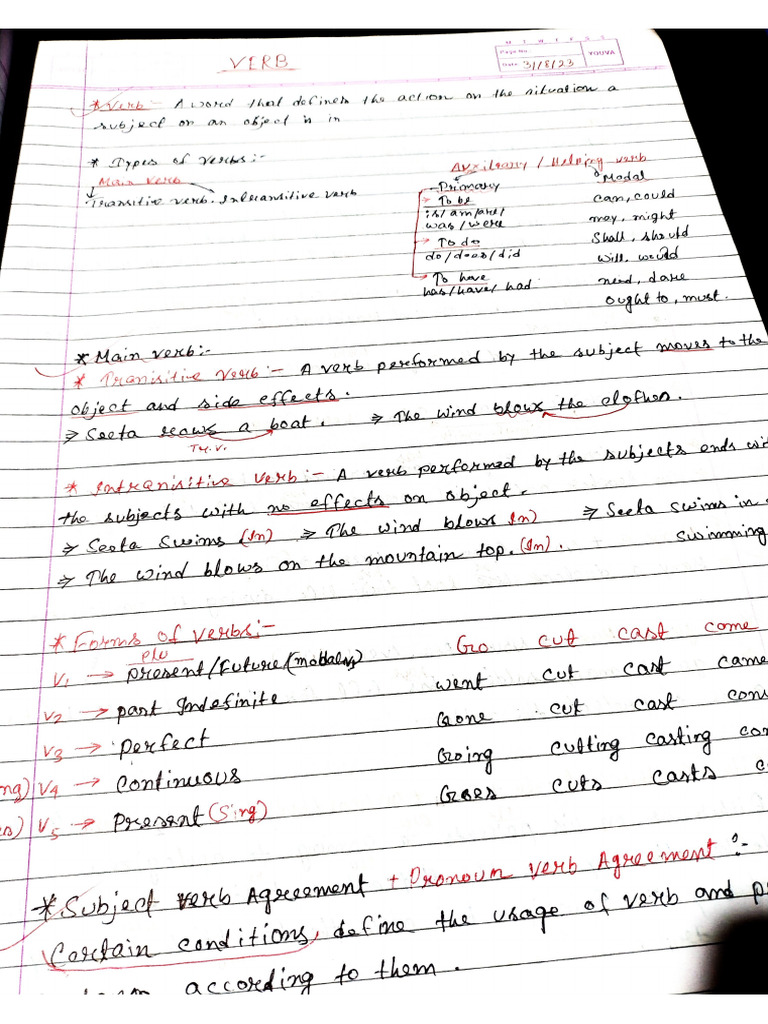 VERB
Page No.
YOUVA
Date 31/8/23
* Verb:- A word that defines the action or the situation a
subject or an object is in
* Types of Verbs:-
Auxiliary / Helping verb
Main verb
Primary
Modal
Transitive verb. Intransitive verb
→ To be
can, could
is/am/are/
may, might
was/were
→ To do
Shall, should
do/does/did
will, would
→ To have
need, dare
has/have/had
ought to, must.
* Main verb:-
* Tranisitive Verb:- A verb performed by the subject moves to the
object and side effects.
⇒ Seeta rows a boat. ⇒ The wind blows the clothes.
Tr.V.
* Intranisitive Verb:- A verb performed by the subjects ends
the subjects with no effects on object.
⇒ Seeta Swims (In) ⇒ The wind blows In) ⇒ Seeta swims in
swimming
⇒ The wind blows on the mountain top. (In).
* Forms of Verbs:-
Go cut cast come
plu
V1 → present/Future/
went cut cast came
V2 → past Indefinite
Gone cut cast
V3 → Perfect
Going cutting casting
V4 → Continuous
Goes cuts casts
V5 → Present (Sing)
* Subject verb Agreement + Pronoun Verb Agreement:-
Certain conditions, define the usage of verb and
according to them.